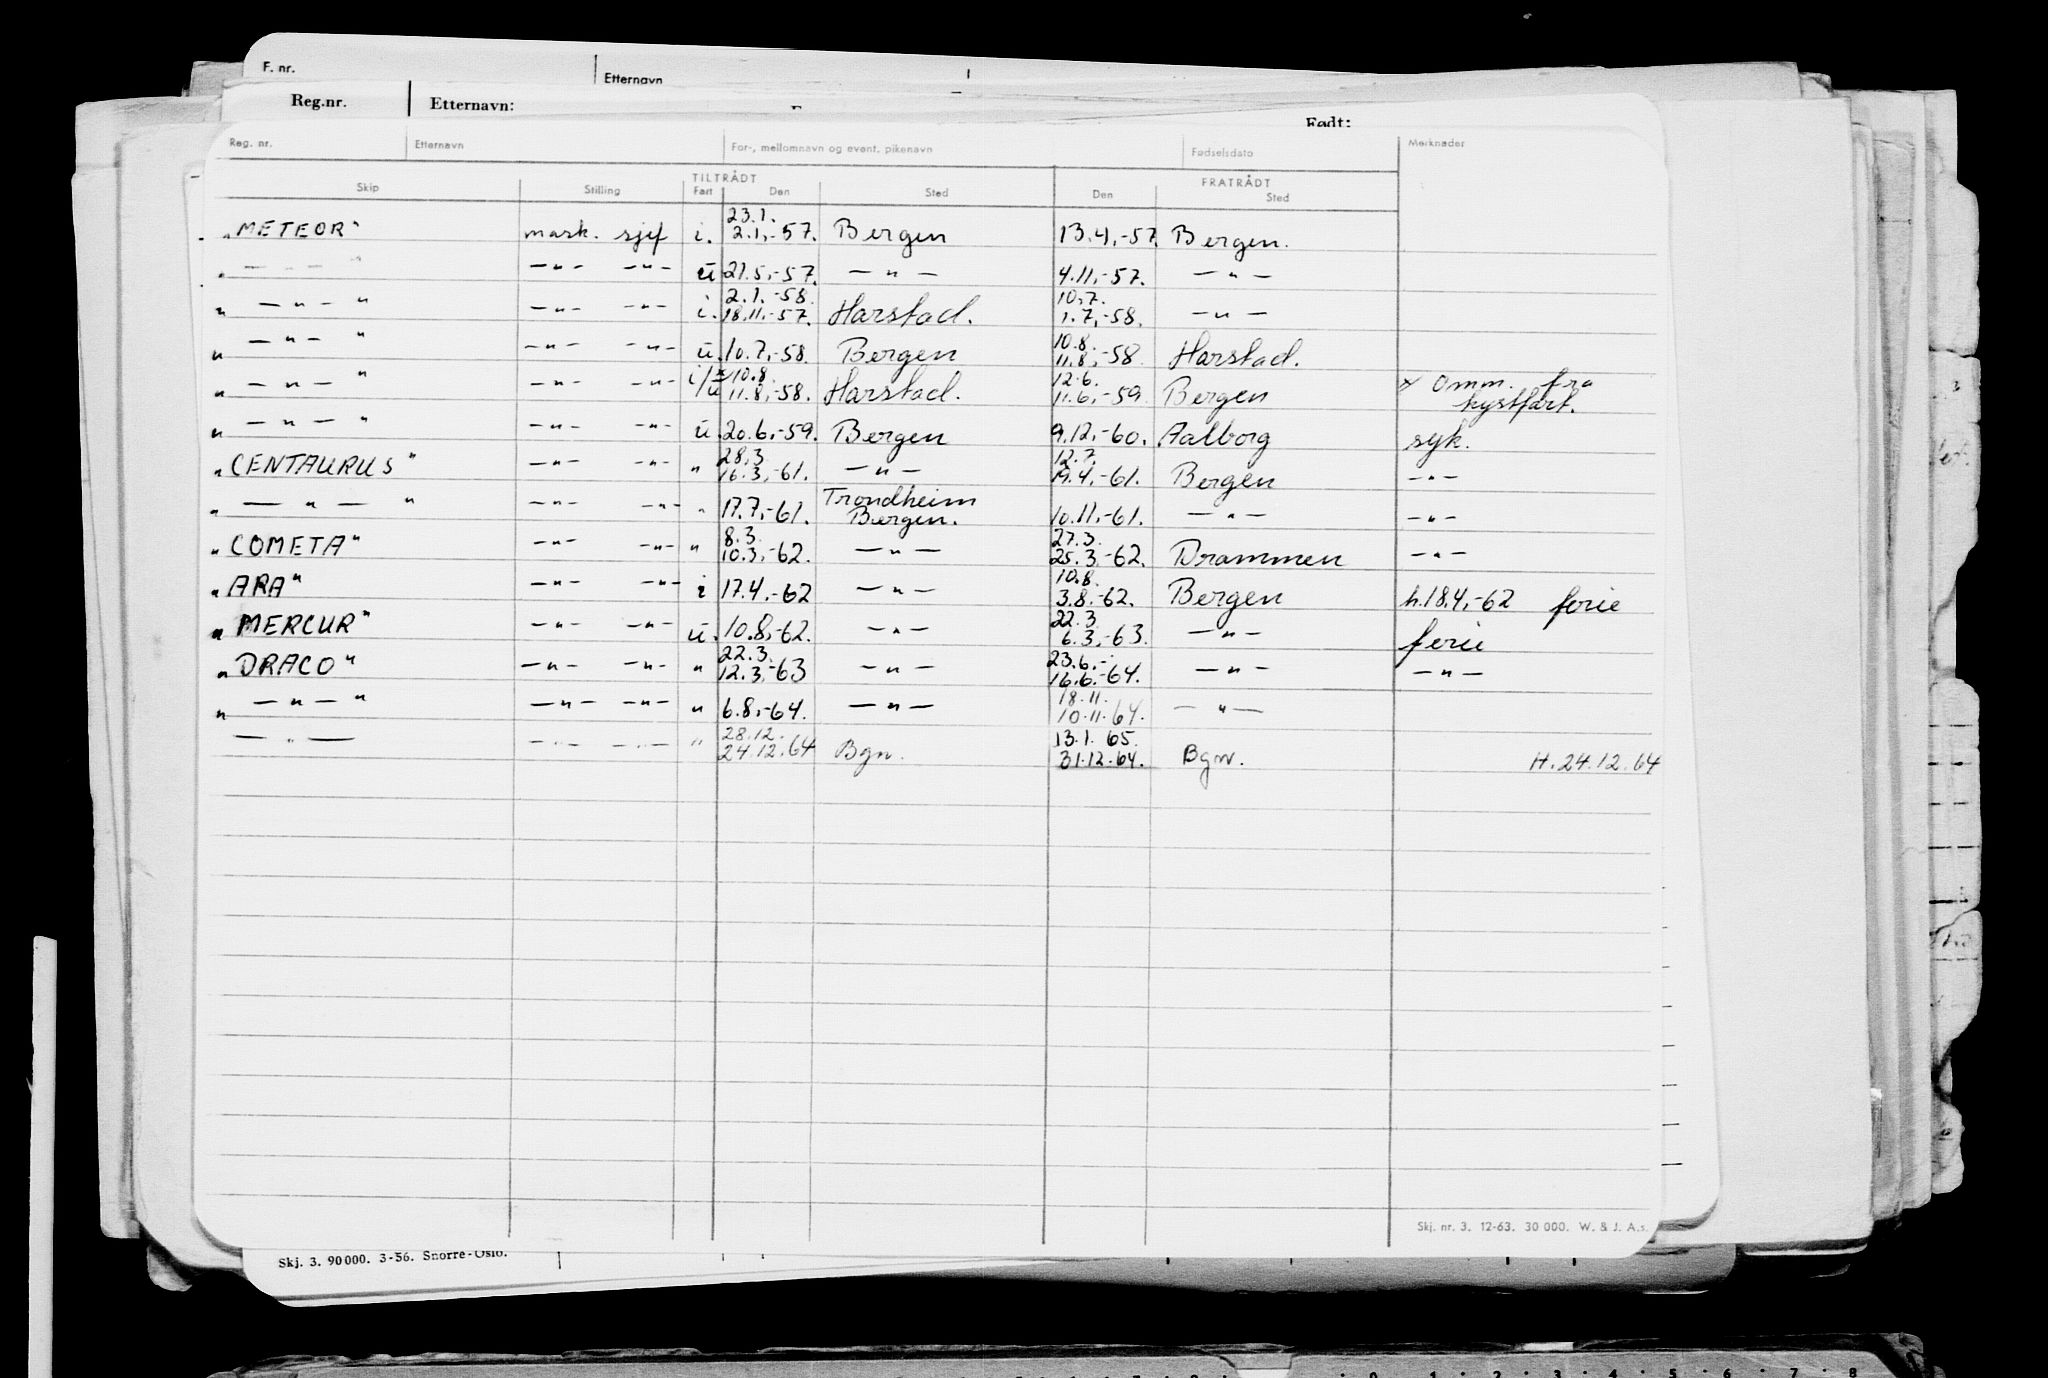 F. nr. Etternavn
Reg.nr. Etternavn: Født:
Reg. nr. Etternavn For-, mellomnavn og event. pikenavn Fødselsdato Merknader
TILTRÅDT FRATRÅDT
Skip Stilling Fart Den Sted Den Sted
23.1.
"METEOR" mask. sjef i. 2.1,-57. Bergen 13.4,-57 Bergen.
" — - - " —"— —"— u 21.5,-57. — " — 4.11,-57. — " —
2.1.-58. 10.7.
" — " — " —"— —"— i. 18.11,-57. Harstad. 1.7,-58. — " —
10.8.
" — " — " —"— —"— u. 10.7,-58. Bergen 11.8,-58 Harstad.
10.8. 12.6. x Omm. fra
" — " — " —"— —"— i/u x 11.8,-58. Harstad. 11.6,-59 Bergen kystfart.
" — " — " —"— —"— u. 20.6,-59. Bergen 9.12,-60. Aalborg syk.
28.3 12.7.
"CENTAURUS" —"— —"— " 16.3,-61. — " — 19.4,-61. Bergen —"—
Trondheim
" — " — " —"— —"— " 17.7,-61. Bergen. 10.11,-61. — " — —"—
8.3. 27.3.
"COMETA" —"— —"— " 10.3,-62. — " — 25.3,-62. Drammen —"—
10.8.
"ARA" —"— —"— i 17.4.-62 — " — 3.8.-62. Bergen h.18.4,-62 ferie
22.3.
"MERCUR" —"— —"— u. 10.8,-62. — " — 6.3,-63. — " — ferie
22.3. 23.6.-
"DRACO" —"— —"— " 12.3,-63 — " — 16.6.-64. — " — — " —
18.11.
" — " — " —"— —"— " 6.8,-64. — " — 10.11.64. — " —
28.12. 13.1.65.
— " — —"— —"— " 24.12.64 Bgn. 31.12.64. Bgn. H. 24.12.64
Skj. nr. 3. 12-63. 30 000. W. & J. A.s.
Skj. 3. 90000. 3-56. Snorre-Oslo.